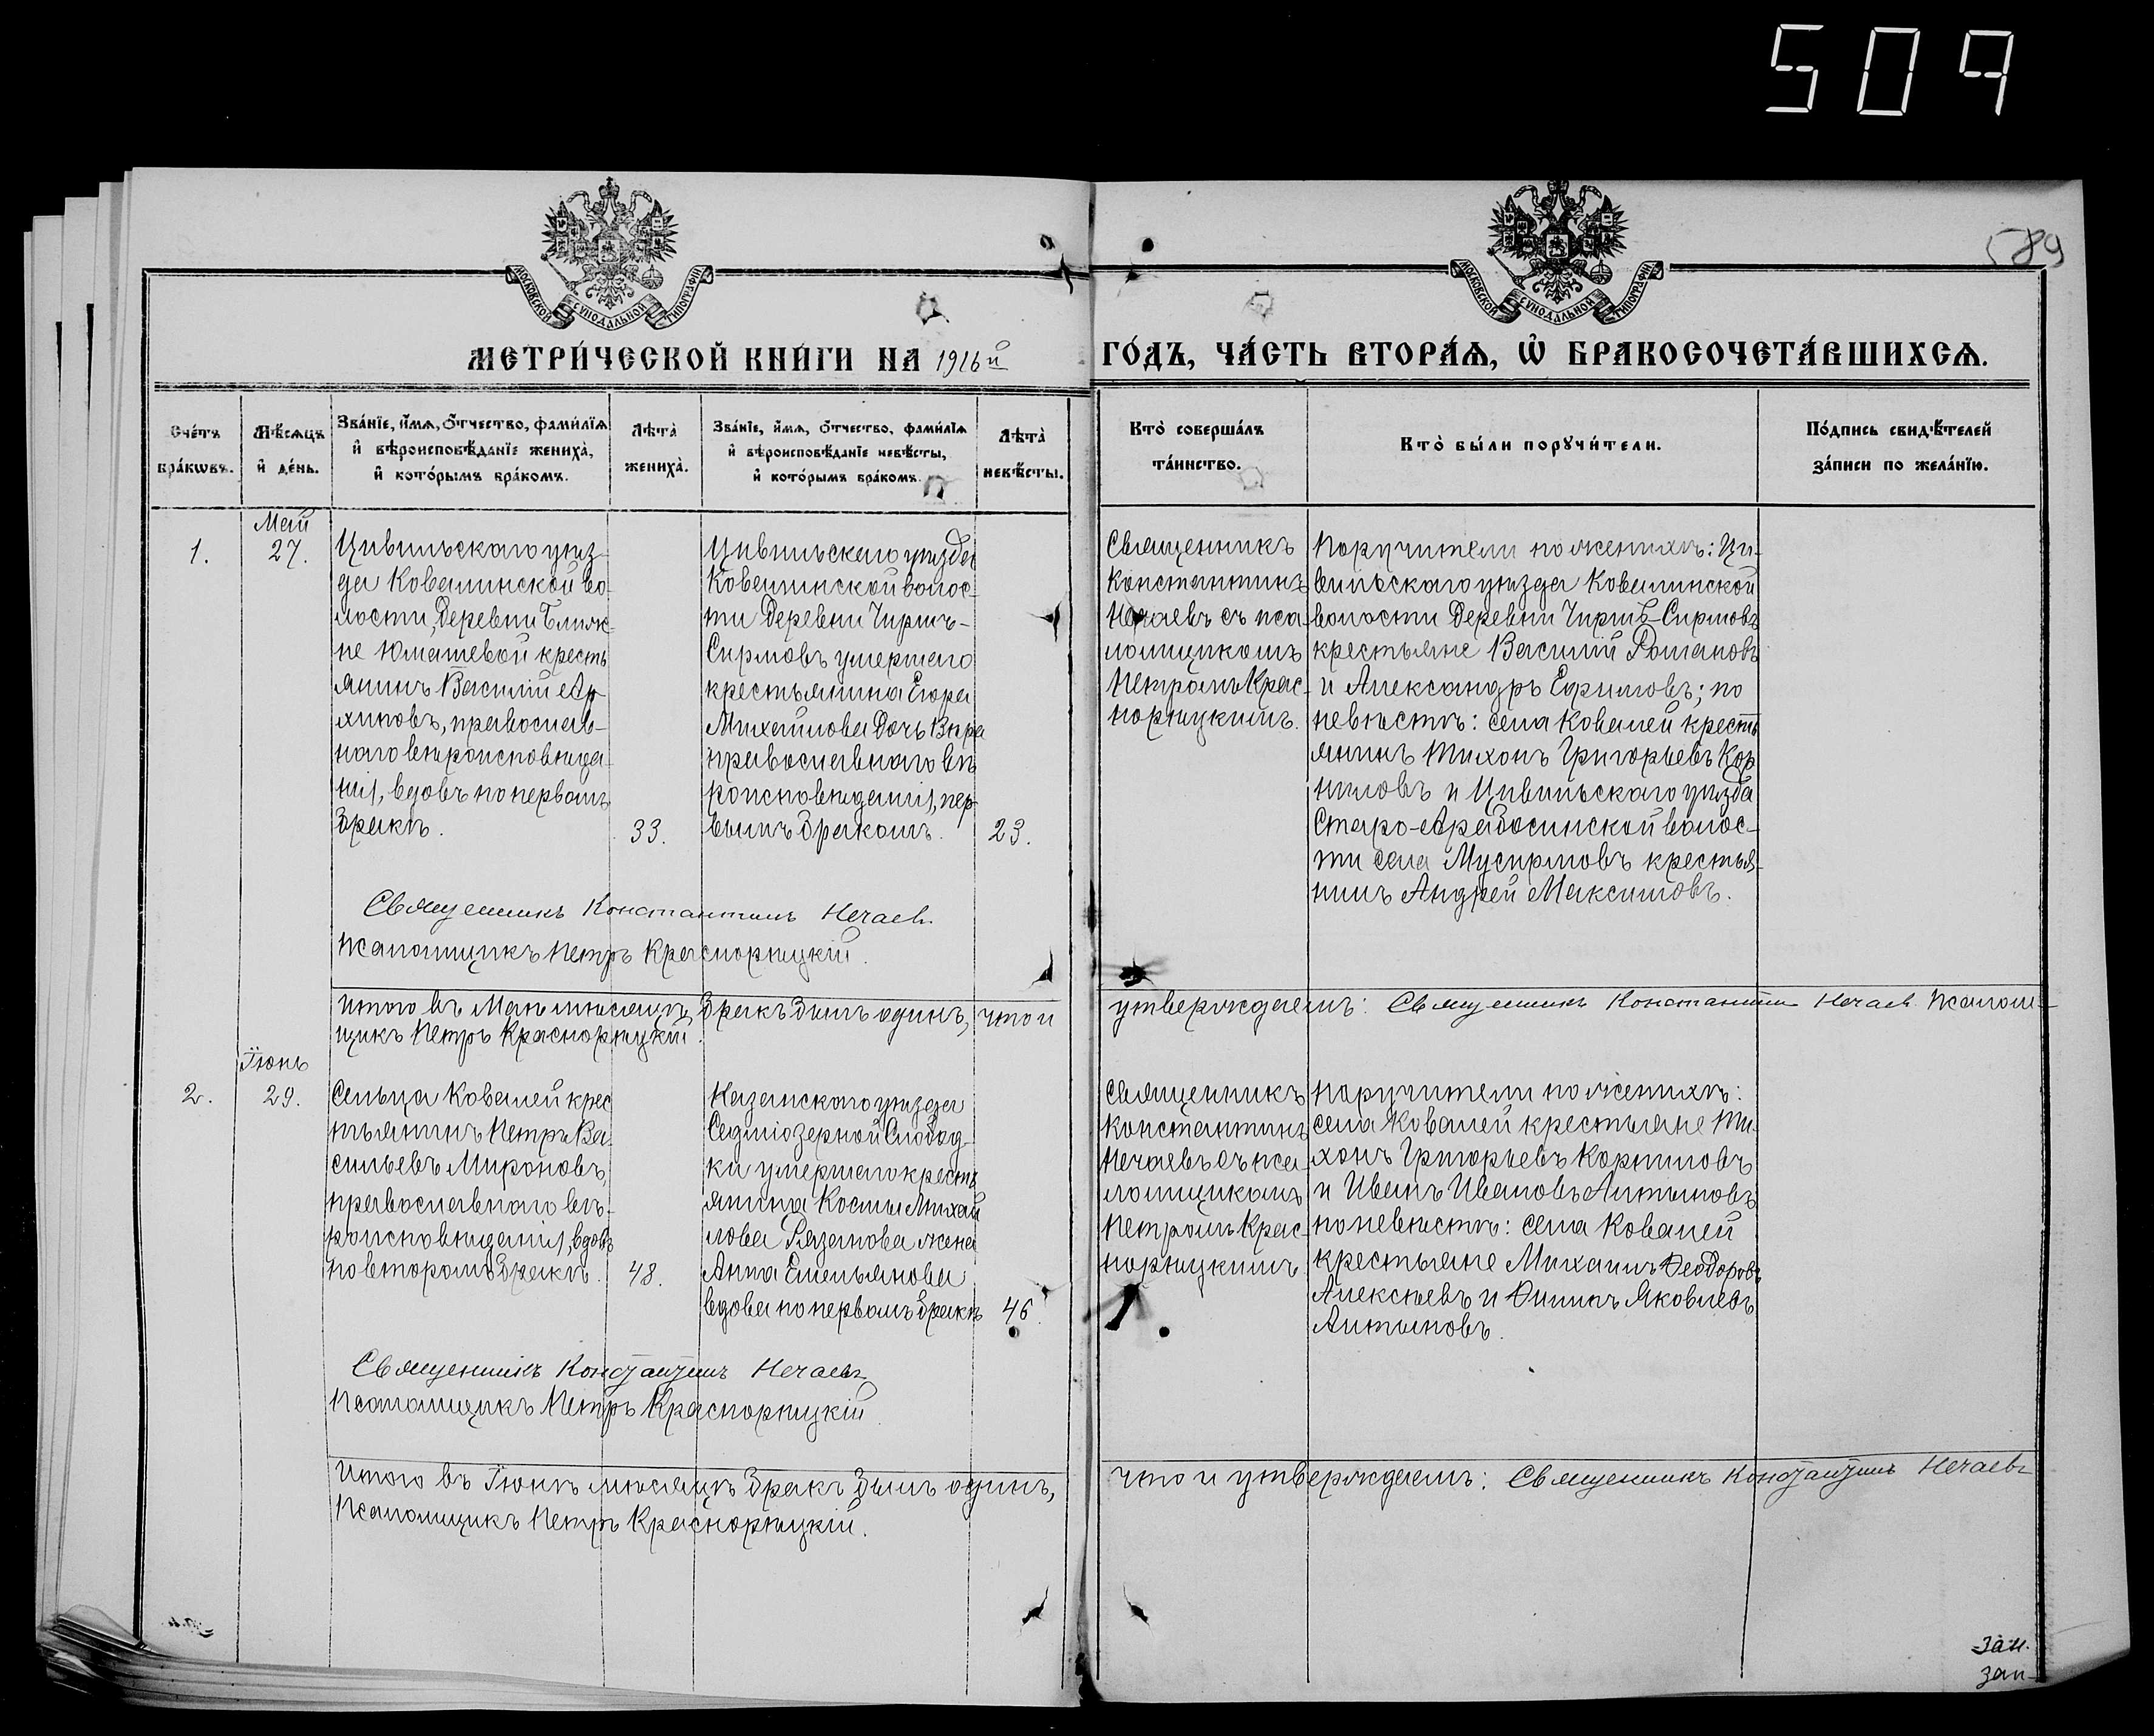 509
589
МОСКОВСКОЙ СУНОДАЛЬНОЙ ТИПОГРАФІИ
МОСКОВСКОЙ СУНОДАЛЬНОЙ ТИПОГРАФІИ
МЕТРИ́ЧЕСКОЙ КНИ́ГИ НА 1916й ГО́ДЪ, ЧА́СТЬ ВТОРА́Ѧ, Ѽ БРАКОСОЧЕТА́ВШИХСѦ.
Сче́тъ бра́кωвъ.
Мѣ́сѧцъ и҆ де́нь.
Зва́нїе, и҆́мѧ, ѻ҆́тчество, фами́лїѧ
и҆ вѣроисповѣ́данїе жениха̀,
и҆ кото́рымъ бра́комъ.
Лѣта̀ жениха̀.
Зва́нїе, и҆́мѧ, ѻ҆́тчество, фами́лїѧ
и҆ вѣроисповѣ́данїе невѣ́сты,
и҆ кото́рымъ бра́комъ.
Лѣта̀ невѣ́сты.
Кто̀ соверша́лъ
та́инство.
Кто̀ бы́ли порꙋчи́тели.
По́дпись свидѣ́телей
за́писи по жела́нїю.
1.
Май
27.
Цивильскаго уѣз-
да Ковалинской во-
лости, деревни Ближ-
не Юмашевой кресть
янинъ Василій Ар-
хиповъ, православ-
наго вѣроисповѣда-
нія, вдовъ по первомъ
бракѣ.
33.
Цивильскаго уѣзда
Ковалинской волос-
ти деревни Чиршъ-
Сирмовъ умершаго
крестьянина Егора
Михайлова дочь Вѣра
православнаго вѣ
роисповѣданія, пер-
вымъ бракомъ.
23.
Священникъ
Константинъ
Нечаевъ съ пса-
ломщикомъ
Петромъ Крас-
норѣцкимъ.
Поручители по женихѣ: Ци-
вильскаго уѣзда Ковалинской
волости деревни Чиршъ-Сирмовъ
крестьяне Василій Романовъ
и Александръ Ефимовъ; по
невѣстѣ: села Ковалей кресть
янинъ Тихонъ Григорьевъ Кор
ниловъ и Цивильскаго уѣзда
Старо-Арабосинской волос-
ти села Мусирмовъ крестья-
нинъ Андрей Максимовъ.
Священникъ Константинъ Нечаев.
Псаломщикъ Петръ Краснорѣцкій.
Итого въ Маѣ мѣсяцѣ бракъ былъ одинъ, что и утверждаемъ: Священникъ Константин Нечаев Псалом-
щикъ Петръ Краснорѣцкій.
2.
Іюнь
29.
Сельца Ковалей крес
тьянинъ Петръ Ва-
сильевъ Мироновъ,
православнаго вѣ-
роисповѣданія, вдовъ
по второмъ бракѣ.
48.
Казанскаго уѣзда
Седміозерной Слобод-
ки умершаго кресть
янина Космы Михай
лова Рязанова жена
Анна Емельянова
вдова по первомъ бракѣ
46.
Священникъ
Константинъ
Нечаевъ съ пса-
ломщикомъ
Петромъ Крас-
норѣцкимъ
Поручители по женихѣ:
села Ковалей крестьяне Ти-
хонъ Григорьевъ Корниловъ
и Иванъ Ивановъ Антыновъ
по невѣстѣ: села Ковалей
крестьяне Михаилъ Ѳеодоровъ
Алексѣевъ и Филипъ Яковлевъ
Антыновъ.
Священникъ Константинъ Нечаевъ
Псаломщикъ Петръ Краснорѣцкій.
Итого въ Іюнѣ мѣсяцѣ бракъ былъ одинъ, что и утверждаемъ: Священникъ Константинъ Нечаевъ
Псаломщикъ Петръ Краснорѣцкій.
зап-